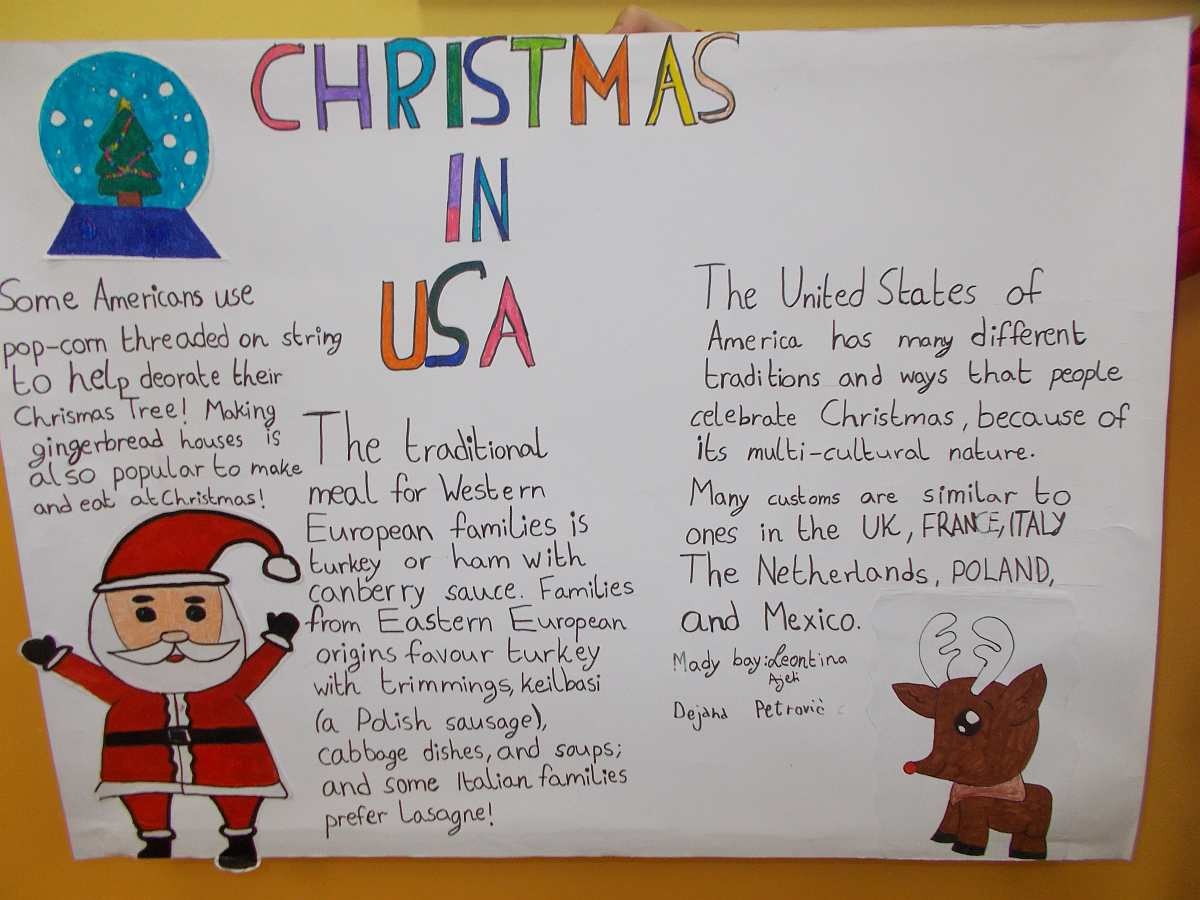 CHRISTMAS
IN
USA
Some Americans use
pop-corn threaded on string
to help deorate their
Chrismas Tree! Making
gingerbread houses is
also popular to make
and eat at Christmas!
The traditional
meal for Western
European families is
turkey or ham with
canberry sauce. Families
from Eastern European
origins favour turkey
with trimmings, keilbasi
(a Polish sausage),
cabbage dishes, and soups;
and some Italian families
prefer Lasagne!
The United States of
America has many different
traditions and ways that people
celebrate Christmas, because of
its multi-cultural nature.
Many customs are similar to
ones in the UK, FRANCE, ITALY
The Netherlands, POLAND,
and Mexico.
Mady bay: Leontina
Ajeti
Dejana Petrović